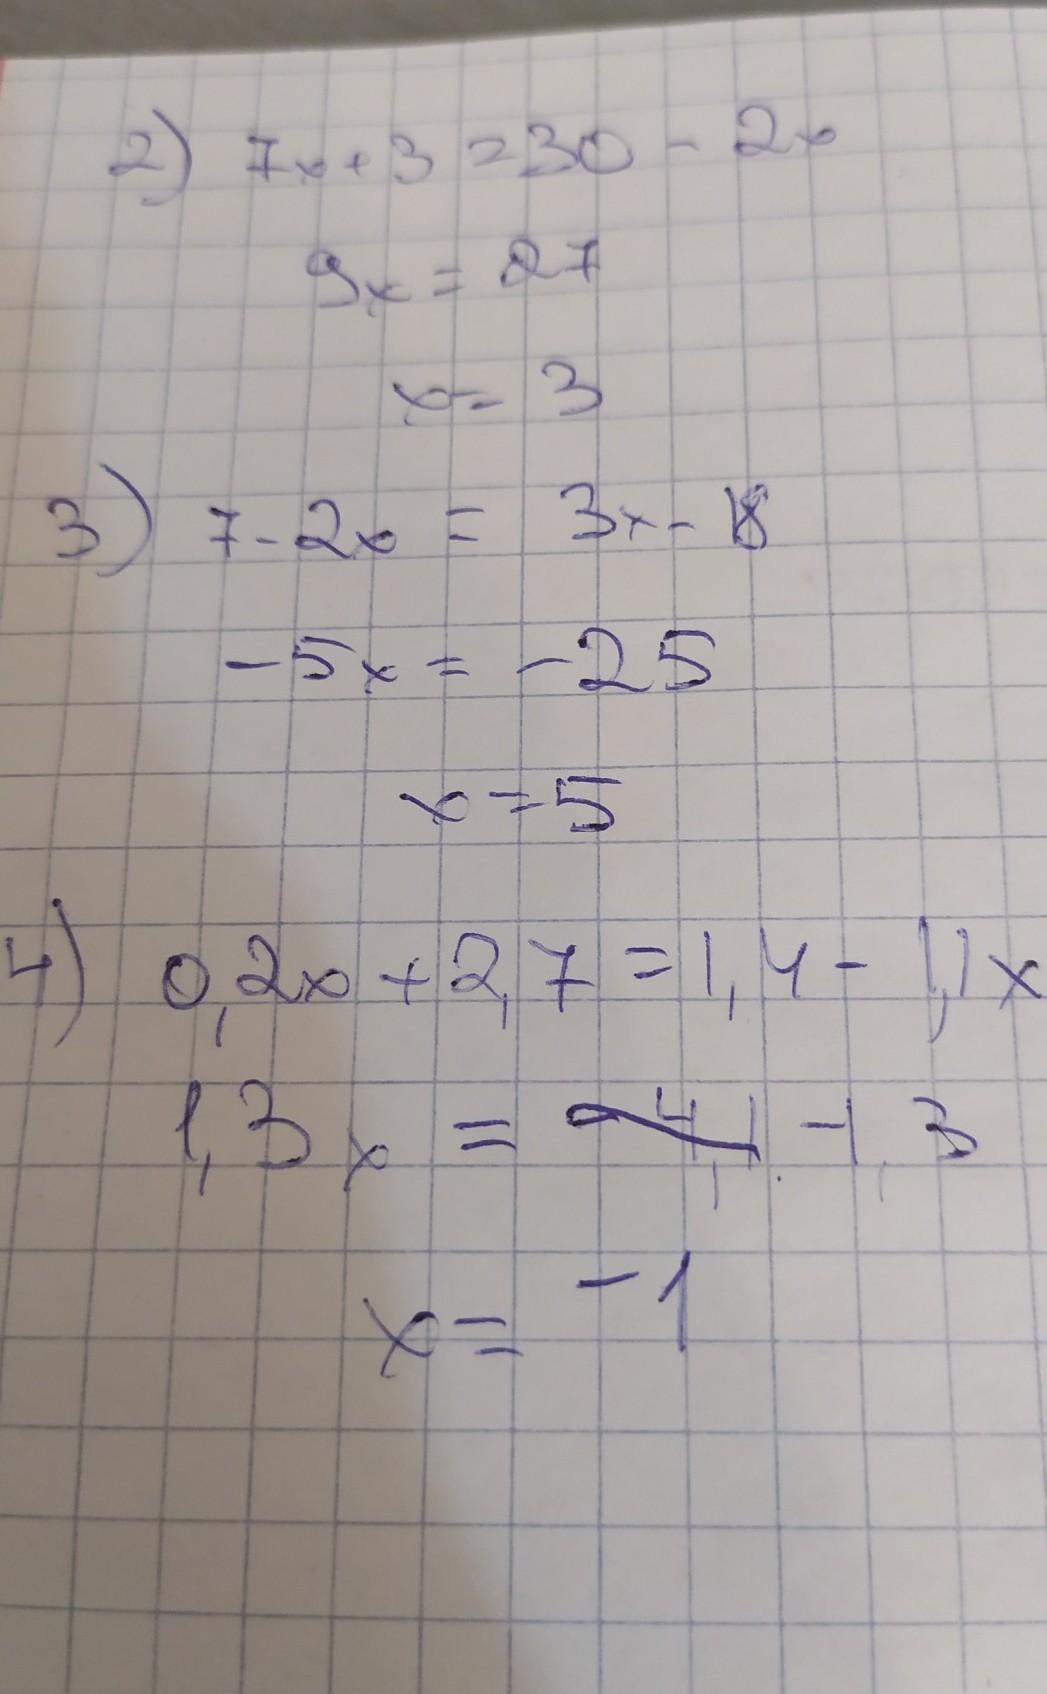 2) 7x+3=30-2x
9x=27
x=3
3) 7-2x=3x-18
-5x=-25
x=5
4) 0,2x+2,7=1,4-1,1x
1,3x=-1,3
x=-1